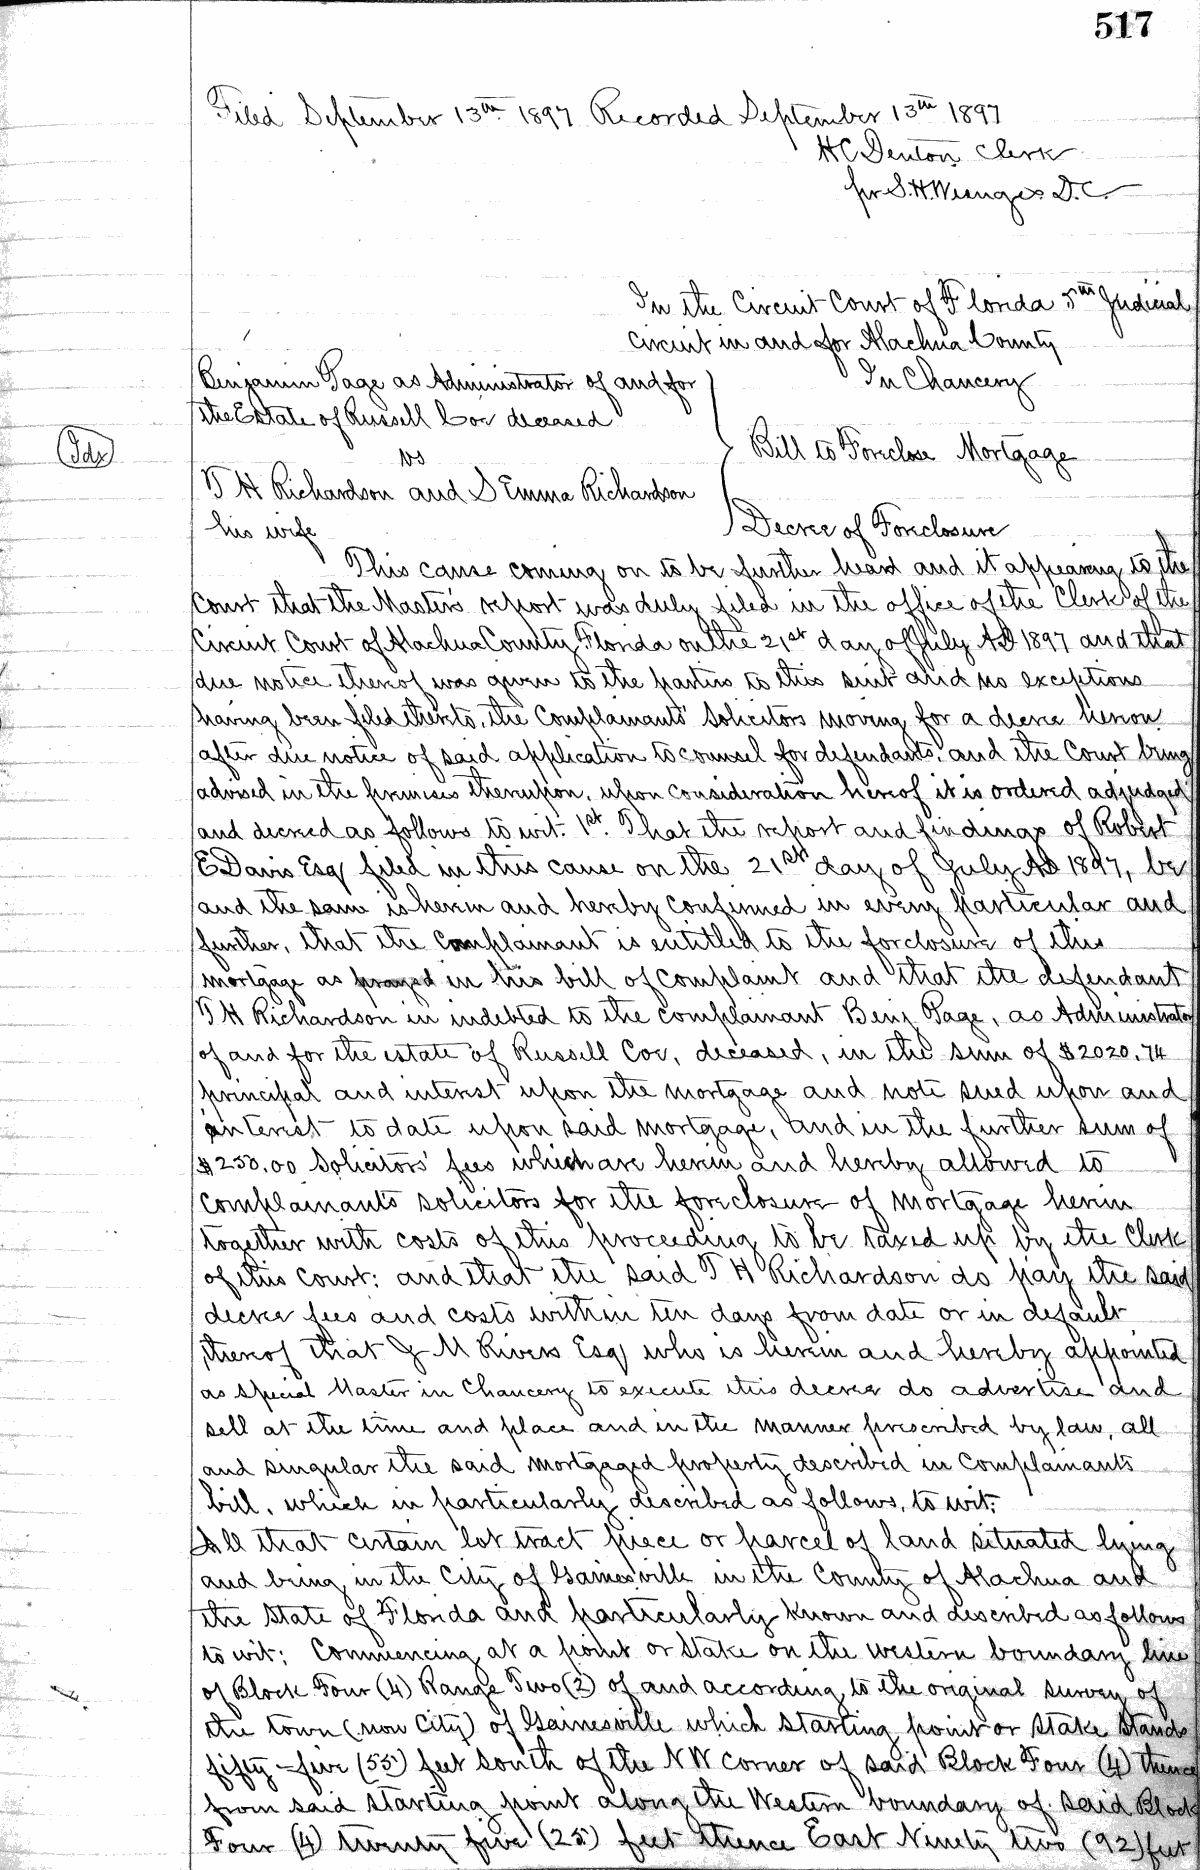 517
Filed September 13th 1897 Recorded September 13th 1897
H C Denton Clerk
pr S. H. Wienges D.C.
In the Circuit Court of Florida 5th Judicial
Circuit in and for Alachua County
Benjamin Page as Administrator of and for
In Chancery
the Estate of Russell Coe deceased
Idx
vs
Bill to Foreclose Mortgage
T H Richardson and S Emma Richardson
his wife
Decree of Foreclosure
This cause coming on to be further heard and it appearing to the
Court that the Master's report was duly filed in the office of the Clerk of the
Circuit Court of Alachua County Florida on the 21st day of July AD 1897 and that
due notice thereof was given to the parties to this suit and no exceptions
having been filed thereto, the Complainants' Solicitors moving for a decree hereon
after due notice of said application to counsel for defendants, and the Court being
advised in the premises thereupon, upon consideration hereof it is ordered adjudged
and decreed as follows to wit: 1st. That the report and findings of Robert
E Davis Esq filed in this cause on the 21st day of July AD 1897, be
and the same is herein and hereby confirmed in every particular and
further, that the Complainant is entitled to the forclosure of this
mortgage as prayed in his bill of complaint and that the defendant
T H Richardson in indebted to the complainant Benj Page, as Administrator
of and for the estate of Russell Coe, deceased, in the sum of $2020.74
principal and interest upon the mortgage and note sued upon and
interest to date upon said mortgage, and in the further sum of
$250.00 Solicitors' fees which are herein and hereby allowed to
complainants solicitors for the foreclosure of mortgage herein
together with costs of this proceeding to be taxed up by the Clerk
of this Court: and that the said T H Richardson do pay the said
decree fees and costs within ten days from date or in default
thereof that J M Rivers Esq who is herein and hereby appointed
as Special Master in Chancery to execute this decree do advertise and
sell at the time and place and in the manner prescribed by law, all
and singular the said mortgaged property described in Complainants
bill, which in particularly described as follows, to wit:
All that certain lot tract piece or parcel of land situated lying
and being in the City of Gainesville in the County of Alachua and
the State of Florida and particularly known and described as follows
to wit: Commencing at a point or stake on the western boundary line
of Block Four (4) Range Two (2) of and according to the original survey of
the town (now City) of Gainesville which starting point or stake stands
fifty-five (55) feet south of the NW corner of said Block Four (4) thence
from said starting point along the Western boundary of said Block
Four (4) twenty five (25) feet thence East Ninety two (92) feet